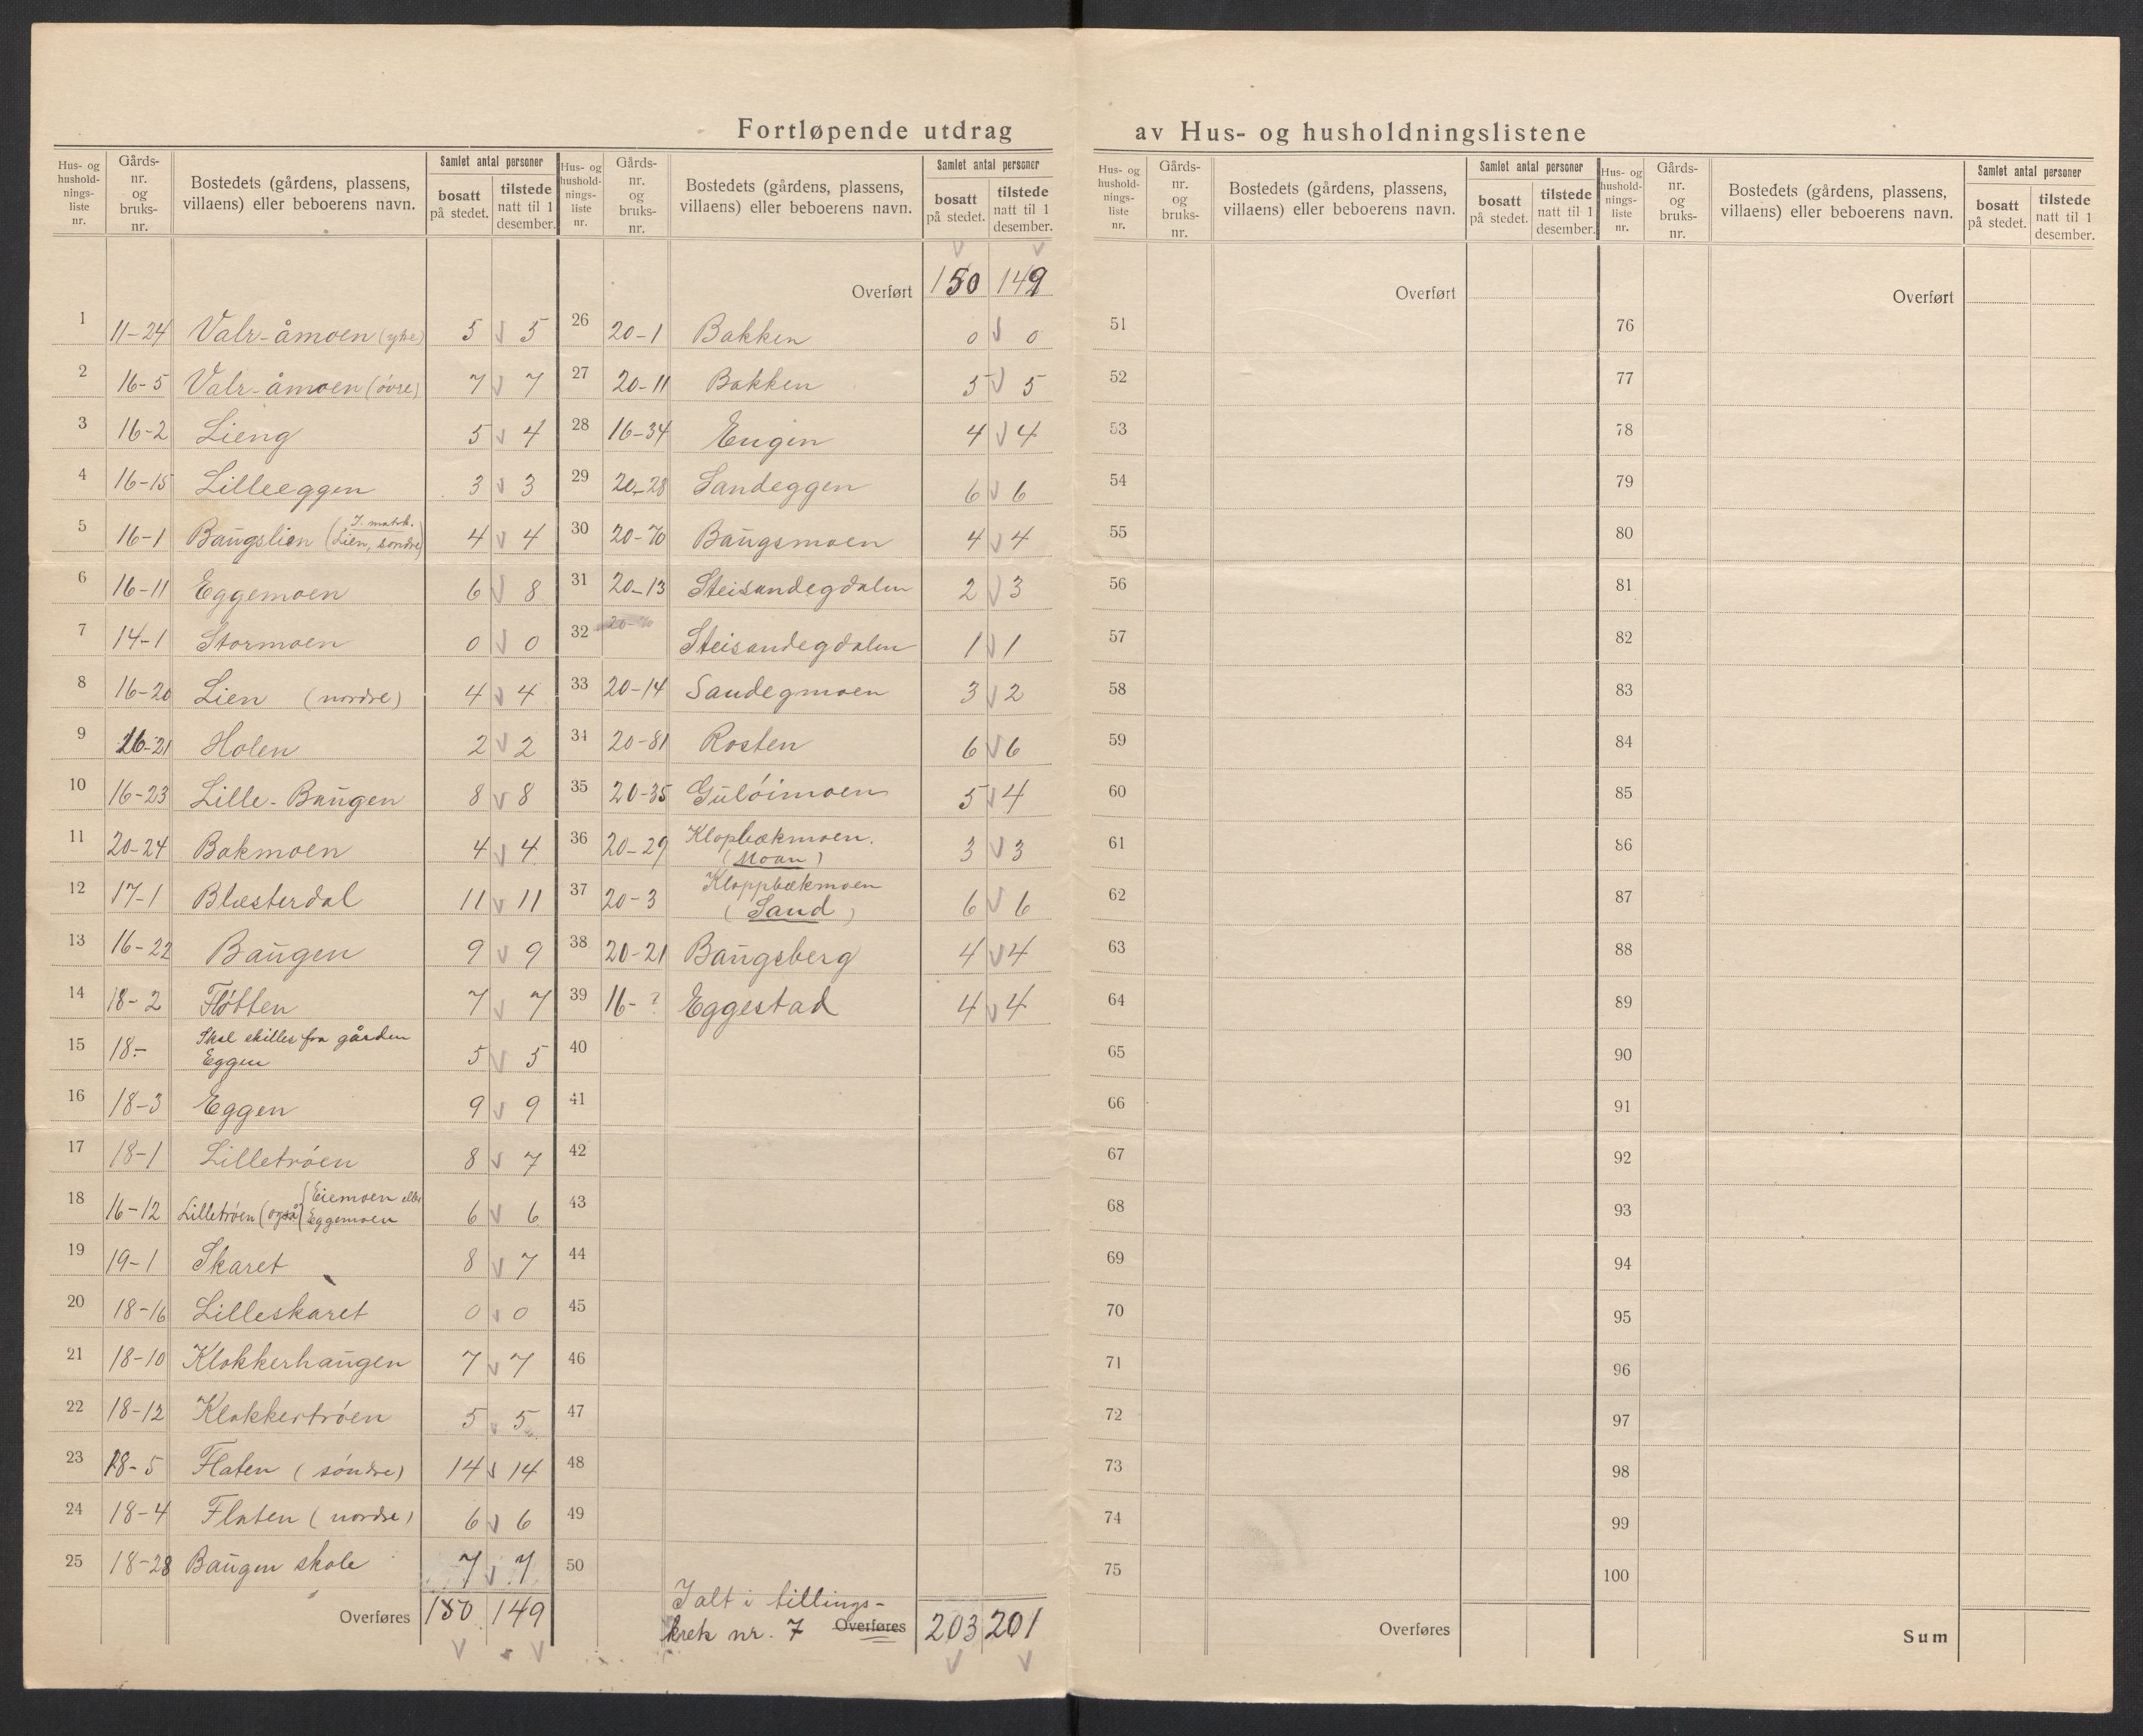 Fortløpende utdrag av Hus- og husholdningslistene
Hus- og husholdnings-liste nr. | Gårds-nr. og bruks-nr. | Bostedets (gårdens, plassens, villaens) eller beboerens navn. | Samlet antal personer | bosatt på stedet. | tilstede natt til 1 desember.
1 11-24 Valr-åmoen 5 5
2 16-5 Valr-åmoen (övre) 7 7
3 16-2 Lieng 5 4
4 16-15 Lilleeggen 3 3
5 16-1 Baŭgslien (J. matrk. Lien, söndre) 4 4
6 16-11 Eggemoen 6 8
7 14-1 Stormoen 0 0
8 16-20 Lien (nordre) 4 4
9 16-21 Holen 2 2
10 16-23 Lille-Baŭgen 8 8
11 20-24 Bakmoen 4 4
12 17-1 Blæsterdal 11 11
13 16-22 Baŭgen 9 9
14 18-2 Fløtten 7 7
15 18- Skal skilles fra gården
Eggen 5 5
16 18-3 Eggen 9 9
17 18-1 Lilletröen 8 7
18 16-12 Lilletröen (også Eiemoen eller
Eggemoen 6 6
19 19-1 Skaret 8 7
20 18-16 Lilleskaret 0 0
21 18-10 Klokkerhaŭgen 7 7
22 18-12 Klokkertröen 5 5
23 18-5 Flaten (söndre) 14 14
24 18-4 Flaten (nordre) 6 6
25 18-28 Baŭgen skole 7 7
Overføres 150 149
Hus- og husholdnings-liste nr. | Gårds-nr. og bruks-nr. | Bostedets (gårdens, plassens, villaens) eller beboerens navn. | Samlet antal personer | bosatt på stedet. | tilstede natt til 1 desember.
Overført 150 149
26 20-1 Bakken 0 0
27 20-11 Bakken 5 5
28 16-34 Engen 4 4
29 20-28 Sandeggen 6 6
30 20-70 Baŭgsmoen 4 4
31 20-13 Steisandegdalen 2 3
32 Steisandegdalen 1 1
33 20-14 Sandegmoen 3 2
34 20-81 Rosten 6 6
35 20-35 Gŭlöimoen 5 4
36 20-29 Klopbækmoen.
(Moan) 3 3
37 20-3 Kloppbækmoen
(Sand) 6 6
38 20-21 Baŭgsberg 4 4
39 16-? Eggestad 4 4
40
41
42
43
44
45
46
47
48
49
50
Ialt i tillings-
krets nr. 7 Overføres 203 201
Hus- og husholdnings-liste nr. | Gårds-nr. og bruks-nr. | Bostedets (gårdens, plassens, villaens) eller beboerens navn. | Samlet antal personer | bosatt på stedet. | tilstede natt til 1 desember.
Overført
51
52
53
54
55
56
57
58
59
60
61
62
63
64
65
66
67
68
69
70
71
72
73
74
75
Overføres
Hus- og husholdnings-liste nr. | Gårds-nr. og bruks-nr. | Bostedets (gårdens, plassens, villaens) eller beboerens navn. | Samlet antal personer | bosatt på stedet. | tilstede natt til 1 desember.
Overført
76
77
78
79
80
81
82
83
84
85
86
87
88
89
90
91
92
93
94
95
96
97
98
99
100
Sum